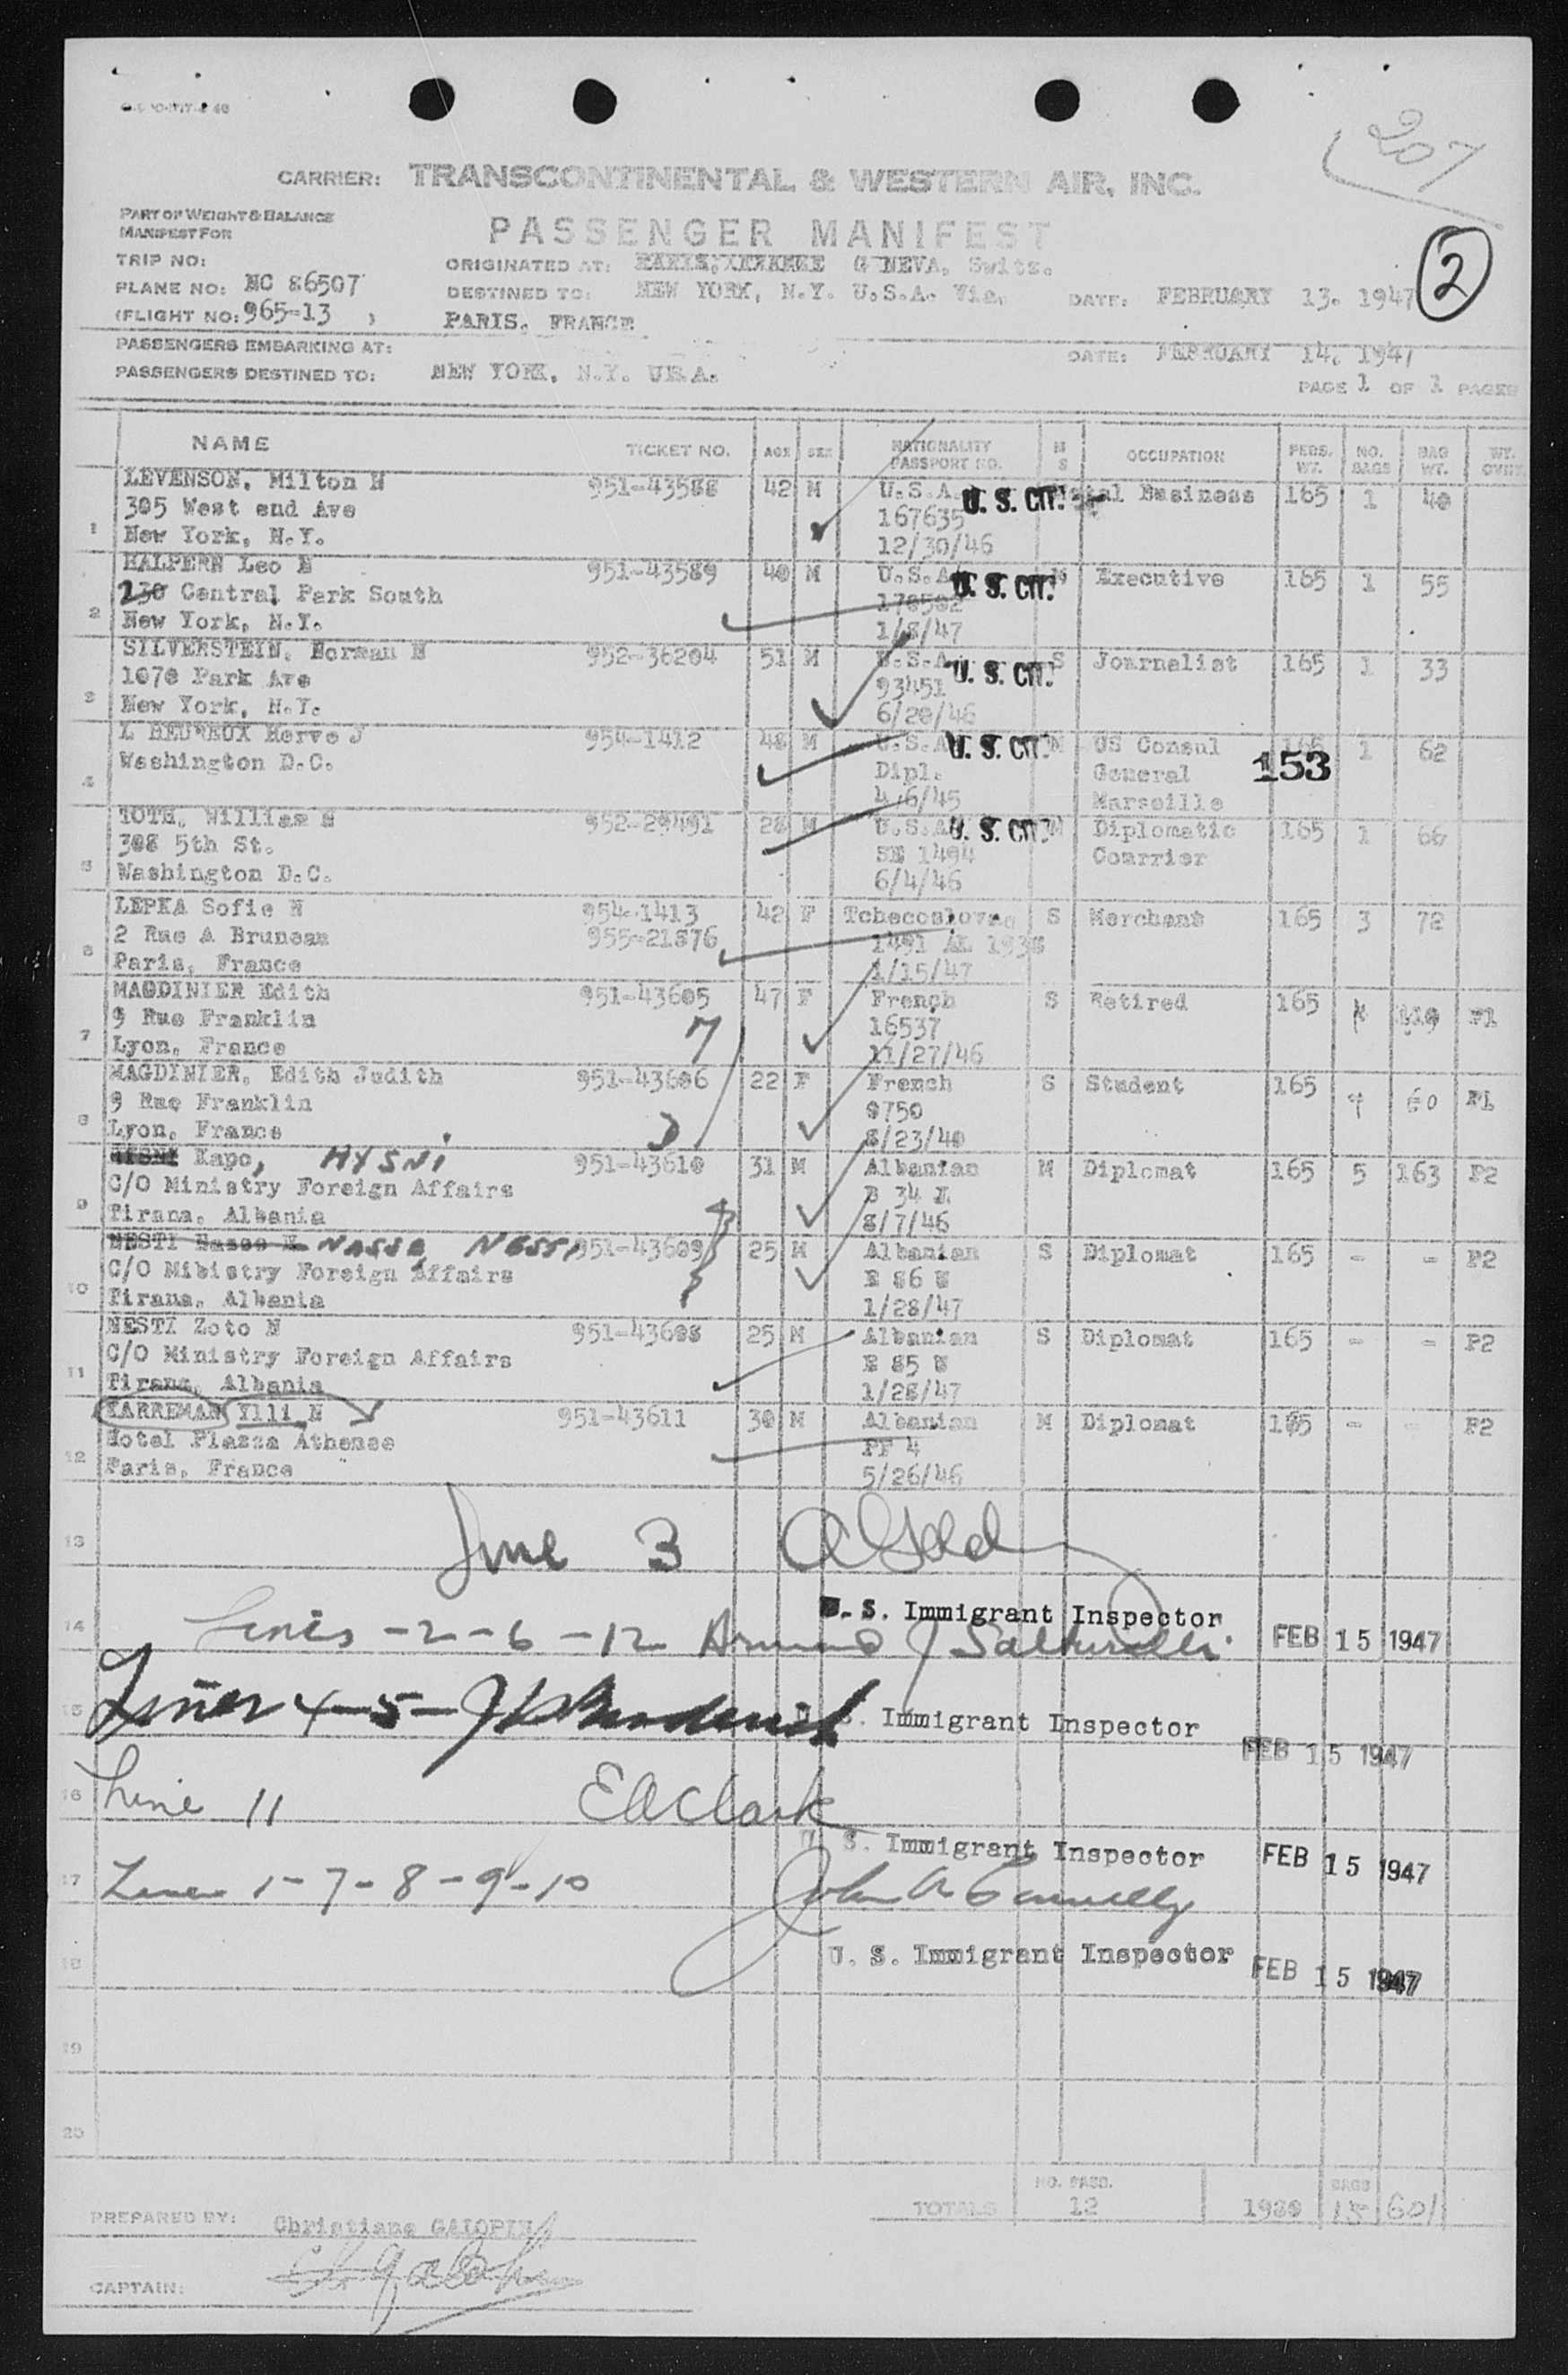 207
CARRIER: TRANSCONTINENTAL & WESTERN AIR, INC.
PART OF WEIGHT & BALANCE
MANIFEST FOR
PASSENGER MANIFEST
2
TRIP NO:
ORIGINATED AT: GENEVA, Switz.
PLANE NO: NC 86507
DESTINED TO: NEW YORK, N.Y. U.S.A. Via. DATE: FEBRUARY 13. 1947
(FLIGHT NO: 965-13 ) PARIS, FRANCE
PASSENGERS EMBARKING AT: DATE: FEBRUARY 14. 1947
PASSENGERS DESTINED TO: NEW YORK, N.Y. U.S.A.
PAGE 1 OF 1 PAGES
NAME TICKET NO. AGE SEX NATIONALITY PASSPORT NO. M S OCCUPATION PERS. WT. NO. BAGS BAG WT. WT. OVER
LEVENSON, Milton N 951-43588 42 M U.S.A. U. S. CIT. Business 165 1 40
305 West end Ave 167635
1 New York, N.Y. 12/30/46
HALPERN Leo N 951-43589 40 M U.S.A. U. S. CIT. M Executive 165 1 55
230 Central Park South 178502
2 New York, N.Y. 1/8/47
SILVERSTEIN, Norman N 952-36204 51 M U.S.A. U. S. CIT. S Journalist 165 1 33
1070 Park Ave 93451
3 New York, N.Y. 6/20/46
L HEUREUX Herve J 954-1412 48 M U.S.A. U. S. CIT. M US Consul 165 1 62
Washington D.C. Dipl. General 153
4 4/6/45 Marseille
TOTH, William N 952-29491 28 M U.S.A. U. S. CIT. M Diplomatic 165 1 66
308 5th St. SE 1494 Courrier
5 Washington D.C. 6/4/46
LEPKA Sofie N 954-1413 42 F Tchecoslovac S Merchant 165 3 72
2 Rue A Bruneau 955-21876 1491 AL 1938
6 Paris, France 1/15/47
MAGDINIER Edith 951-43605 47 F French S Retired 165 F1
9 Rue Franklin 16537
7 Lyon, France 11/27/46
MAGDINIER, Edith Judith 951-43606 22 F French S Student 165 60 F1
9 Rue Franklin 8750
8 Lyon, France 8/23/40
Kapo, HYSNI 951-43610 31 M Albanian M Diplomat 165 5 163 F2
C/O Ministry Foreign Affairs
9 Tirana, Albania 8/7/46
NESTI Nasse N NASSE, NESTI 951-43609 25 M Albanian S Diplomat 165 - - F2
C/O Mibistry Foreign Affairs
10 Tirana, Albania 1/28/47
NESTI Zoto N 951-43608 25 M Albanian S Diplomat 165 - - F2
C/O Ministry Foreign Affairs
11 Tirana, Albania 1/28/47
KARREMAN Ylli N 951-43611 30 M Albanian M Diplomat 165 - - F2
Hotel Plazza Athenee PF 4
12 Paris, France 5/26/46
13 Line 3
U. S. Immigrant Inspector
14 Lines - 2 - 6 - 12 FEB 15 1947
15 Lines 4-5- U. S. Immigrant Inspector
FEB 15 1947
16 Line 11 E A Clark
U. S. Immigrant Inspector FEB 15 1947
17 Lines 1 - 7 - 8 - 9 - 10
18 U. S. Immigrant Inspector FEB 15 1947
19
20
TOTALS NO. PASS. 12 1980 BAGS 15 601
PREPARED BY: Christiane GALOPIN
CAPTAIN: